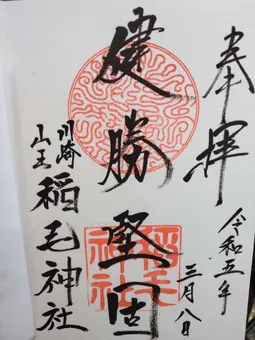 奉拝
令和五年
三月八日
健勝堅固
川崎
山王
稲毛神社